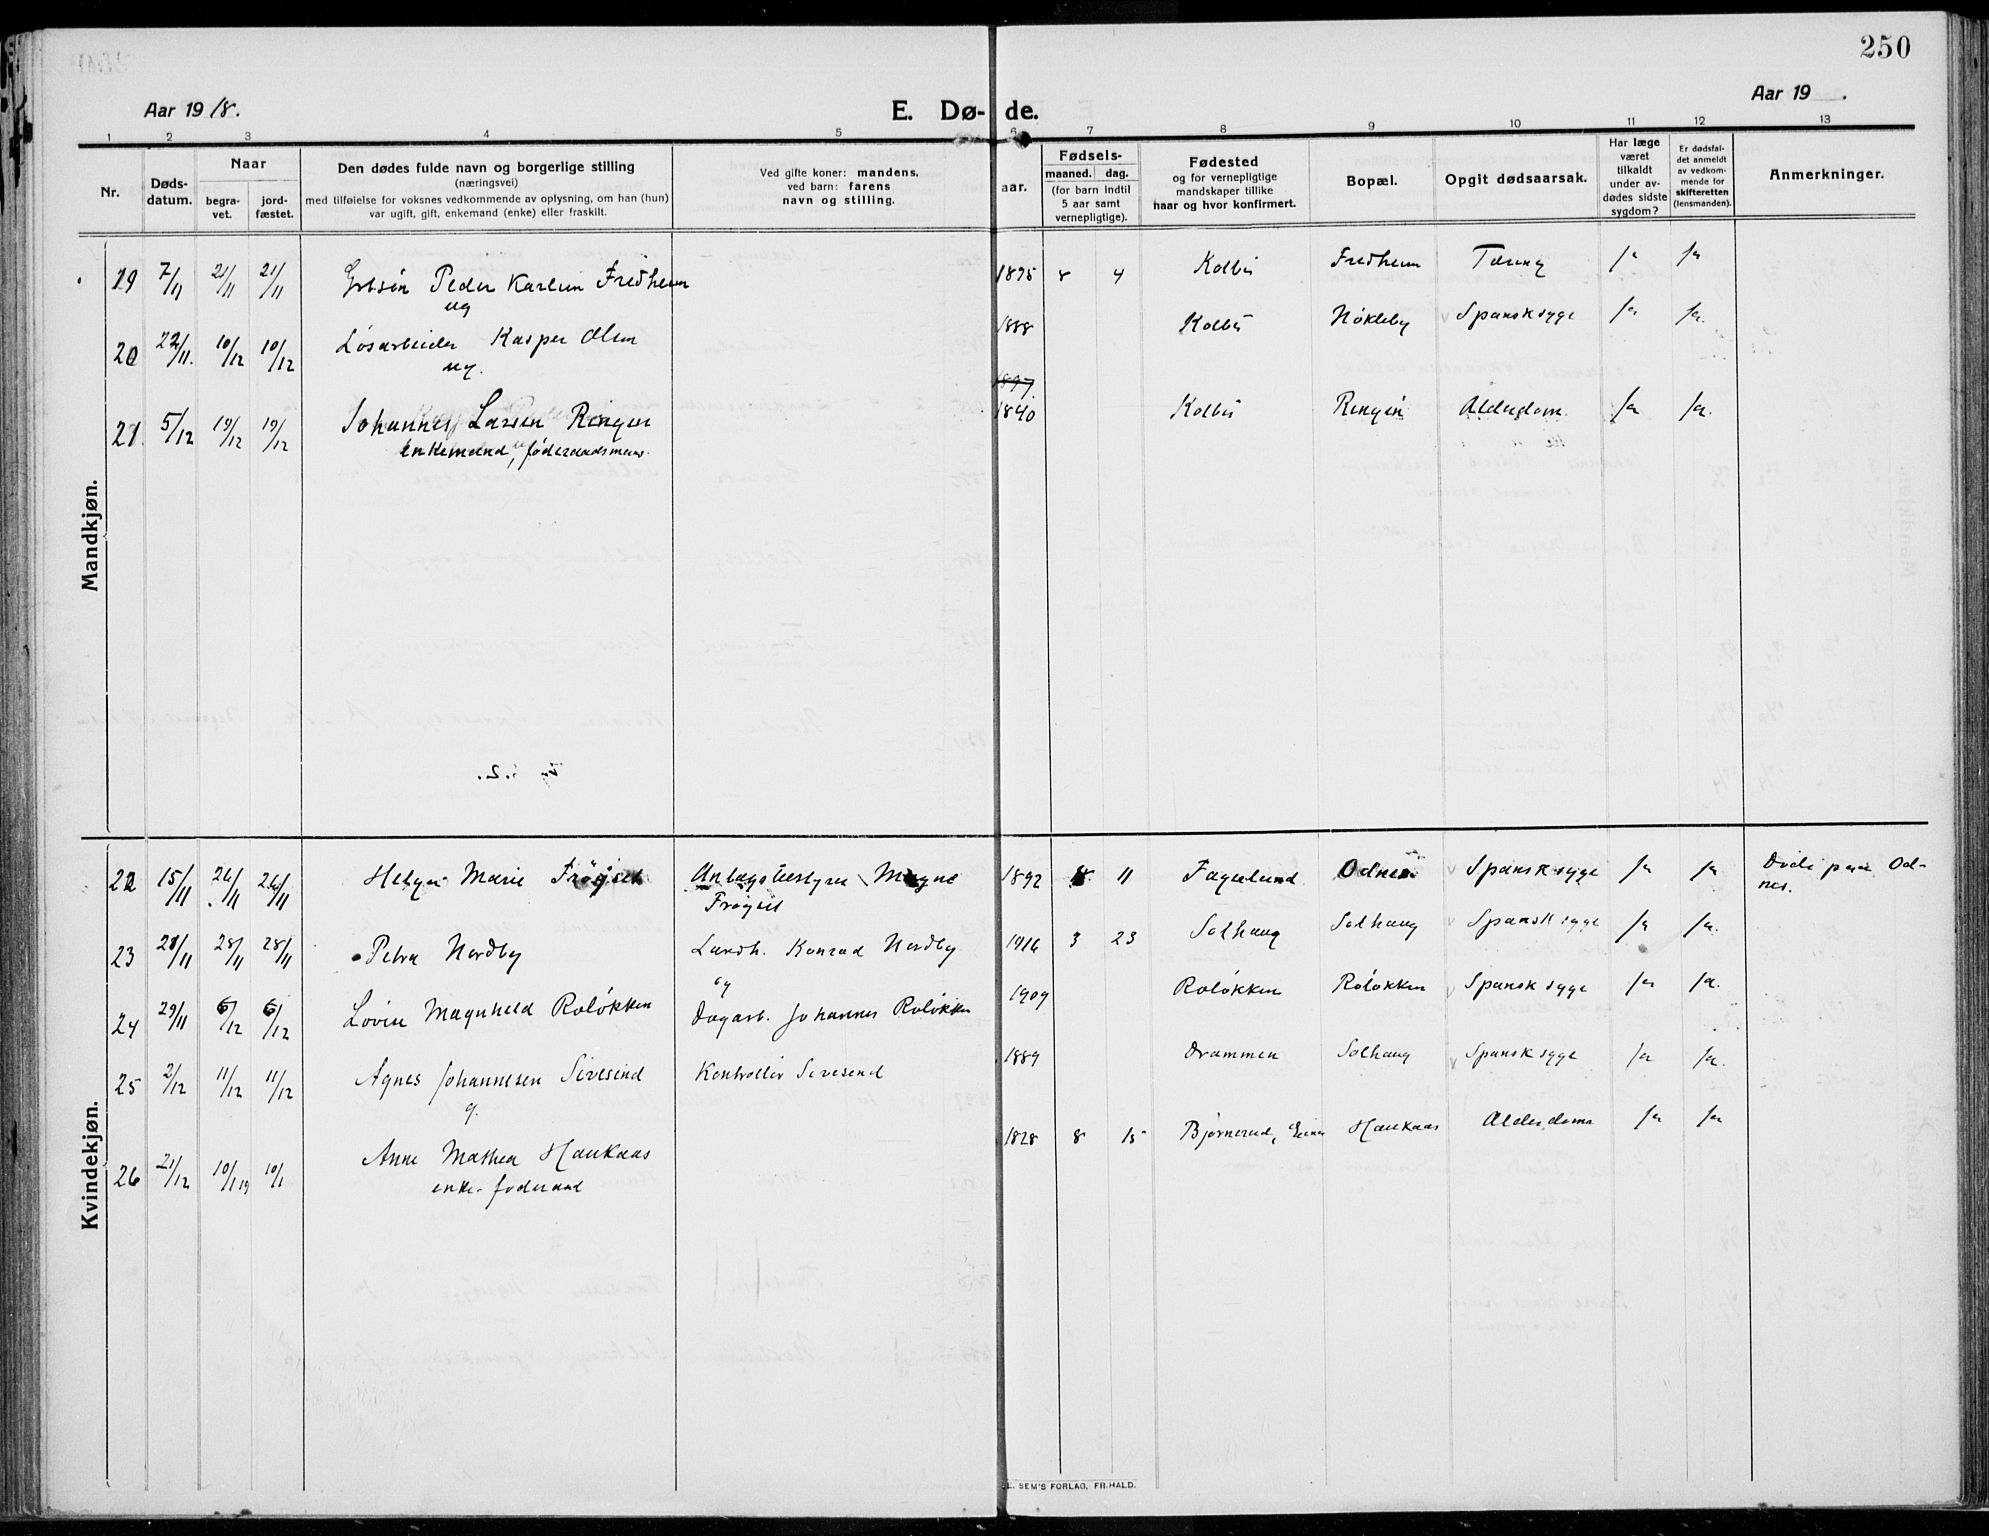 250
Aar 1918.
E. Dø-de.
Aar 19 .
1 2 3 4 5 6 7 8 9 10 11 12 13
Nr.
Døds-
datum.
Naar
begra-
vet.
jord-
fæstet.
Den dødes fulde navn og borgerlige stilling
(næringsvei)
med tilføielse for voksnes vedkommende av oplysning, om han (hun)
var ugift, gift, enkemand (enke) eller fraskilt.
Ved gifte koner: mandens,
ved barn: farens
navn og stilling.
aar.
Fødsels-
maaned. dag.
(for barn indtil
5 aar samt
vernepligtige).
Fødested
og for vernepligtige
mandskaper tillike
naar og hvor konfirmert.
Bopæl.
Opgit dødsaarsak.
Har læge
været
tilkaldt
under av-
dødes sidste
sygdom?
Er dødsfal-
det anmeldt
av vedkom-
mende for
skifteretten
(lensmanden).
Anmerkninger.
Mandkjøn.
19 7/11 21/11 21/11 Grbsøn Peder Karlum Fredheim 1895 8 4 Kolbu Fredheim Tæring ja ja
ug
20 22/11. 10/12 10/12 Løsarbeider Kasper Olsen 1888 Kolbu Nøkleby Spansksyge ja ja.
ug.
1897
21. 5/12 19/12 19/12 Johannes Larsen Ringen 1840 Kolbu Ringen Alderdom ja ja.
enkemand, føderaadsmand
Kvindekjøn.
22 15/11 26/11 26/11 Helga Marie Frøysett Anlægsbestyrer Magne 1892 8 11 Fagerlund Odnes Spansksyge ja ja Døde paa Od-
Frøyset
nes.
23 21/11 28/11 28/11 Petra Nordby Landh. Konrad Nordby 1916 3 23 Solhaug Solhaug Spansk syge ja ja.
24 29/11 6/12 6/12 Lovise Magnhild Roløkken ug Dagarb. Johannes Roløkken 1909 Roløkken Roløkken Spansk syge ja ja.
25 2/12 11/12 11/12 Agnes Johannesen Sivesind Kontrollør Sivesind 1889 Drammen Solhaug Spansk syge ja ja.
g.
26 21/12 10/1 19 10/1 Anne Mathea Haukaas 1828 8 15 Bjørnerud, Eina Haukaas Alderdom ja ja
enke. føderaad
E. SEM'S FORLAG, FR.HALD.